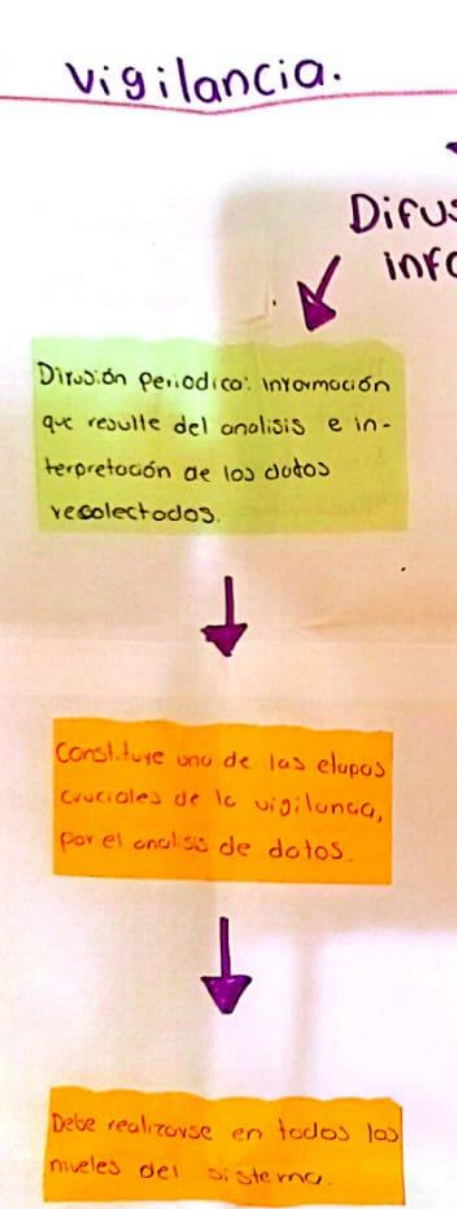 Vigilancia.
Difus
info
Difusión periodico: información
que resulte del analisis e in-
terpretación de los datos
recolectados.
Constituye una de las etapas
cruciales de la vigilancia,
por el analisis de datos.
Debe realizarse en todos los
niveles del sistema.